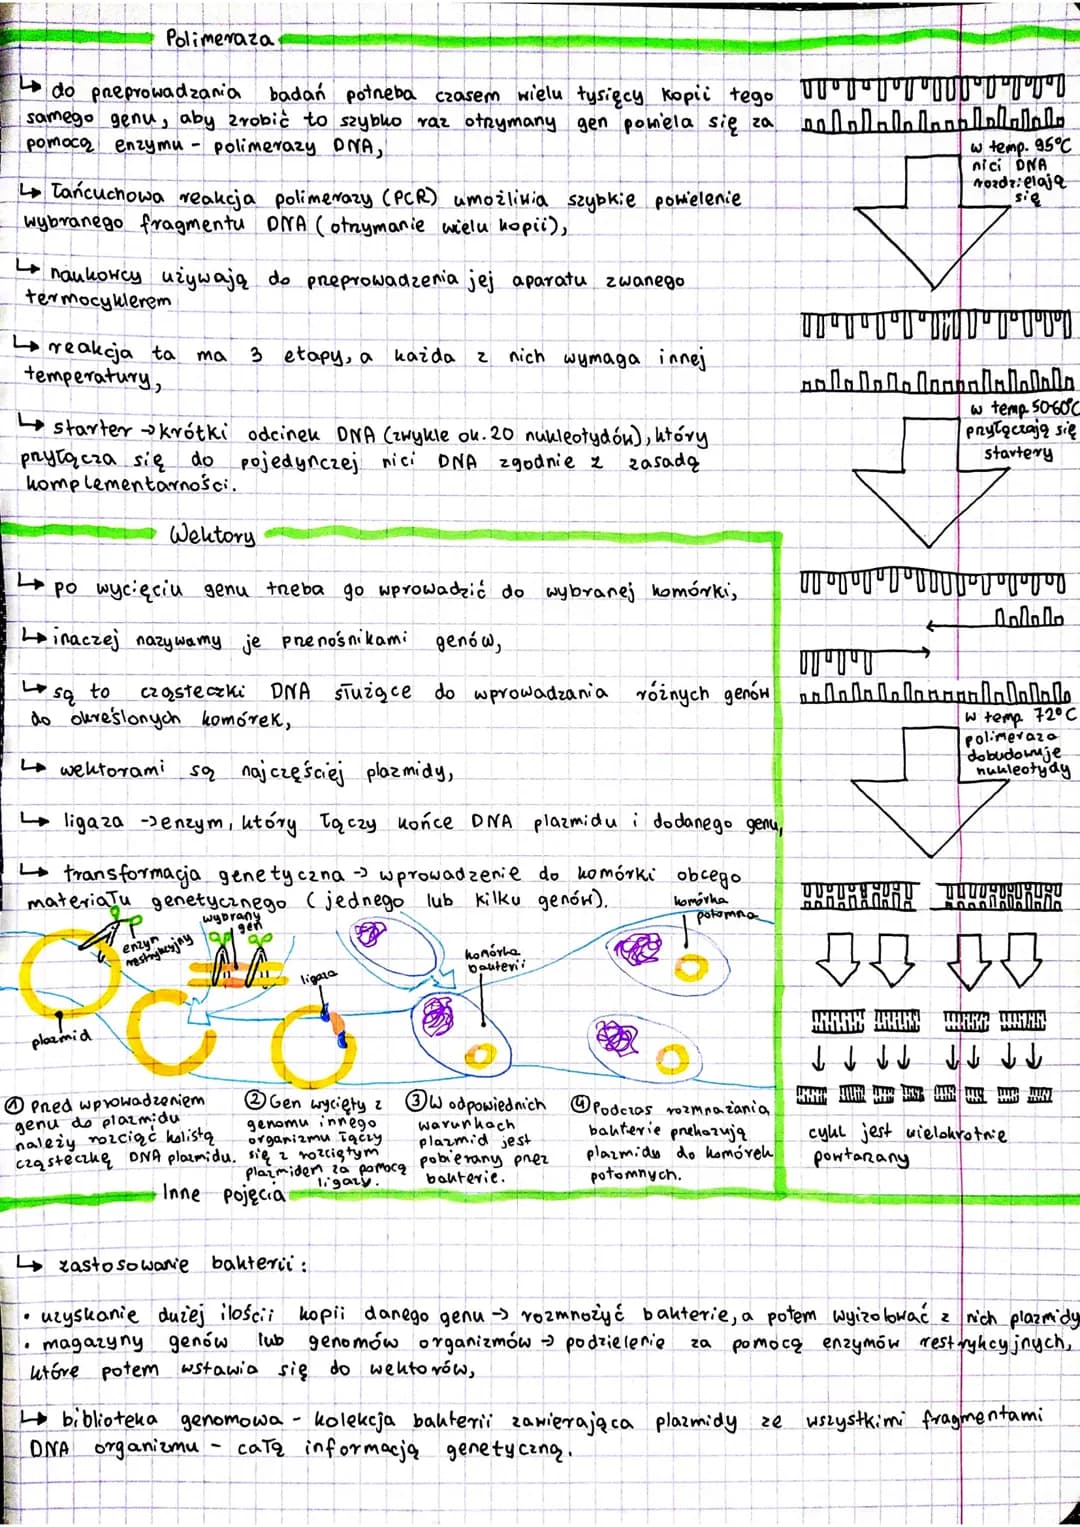 Polimeraza
↳ do przeprowadzania badań potrzeba czasem wielu tysięcy kopii tego
samego genu, aby zrobić to szybko raz otrzymany gen powiela się za
pomocą enzymu - polimerazy DNA,
↳ Łańcuchowa reakcja polimerazy (PCR) umożliwia szybkie powielenie
wybranego fragmentu DNA (otrzymanie wielu kopii),
↳ naukowcy używają do przeprowadzenia jej aparatu zwanego
termocyklerem
↳ reakcja ta ma 3 etapy, a każda z nich wymaga innej
temperatury,
↳ starter → krótki odcinek DNA (zwykle ok. 20 nukleotydów), który
przyłącza się do pojedynczej nici DNA zgodnie z zasadą
komplementarności.
w temp. 95°C
nici DNA
rozdzielają
się
w temp. 50-60°C
przyłączają się
startery
w temp. 72°C
polimeraza
dobudowuje
nukleotydy
cykl jest wielokrotnie
powtarzany
Wektory
↳ po wycięciu genu trzeba go wprowadzić do wybranej komórki,
↳ inaczej nazywamy je przenośnikami genów,
↳ są to cząsteczki DNA służące do wprowadzania różnych genów
do określonych komórek,
↳ wektorami są najczęściej plazmidy,
↳ ligaza → enzym, który łączy końce DNA plazmidu i dodanego genu,
↳ transformacja genetyczna → wprowadzenie do komórki obcego
materiału genetycznego (jednego lub kilku genów).
enzym
restrykcyjny
wybrany
gen
ligaza
komórka
bakterii
komórka
potomna
plazmid
① Przed wprowadzeniem
genu do plazmidu
należy rozciąć kolistą
cząsteczkę DNA plazmidu.
② Gen wycięty z
genomu innego
organizmu łączy
się z rozciętym
plazmidem za pomocą
ligazy.
③ W odpowiednich
warunkach
plazmid jest
pobierany przez
bakterie.
④ Podczas rozmnażania
bakterie przekazują
plazmidy do komórek
potomnych.
Inne pojęcia
↳ zastosowanie bakterii:
• uzyskanie dużej ilości kopii danego genu → rozmnożyć bakterie, a potem wyizolować z nich plazmidy
• magazyny genów lub genomów organizmów → podzielenie za pomocą enzymów restrykcyjnych,
które potem wstawia się do wektorów,
↳ biblioteka genomowa - kolekcja bakterii zawierająca plazmidy ze wszystkimi fragmentami
DNA organizmu - całą informacją genetyczną.